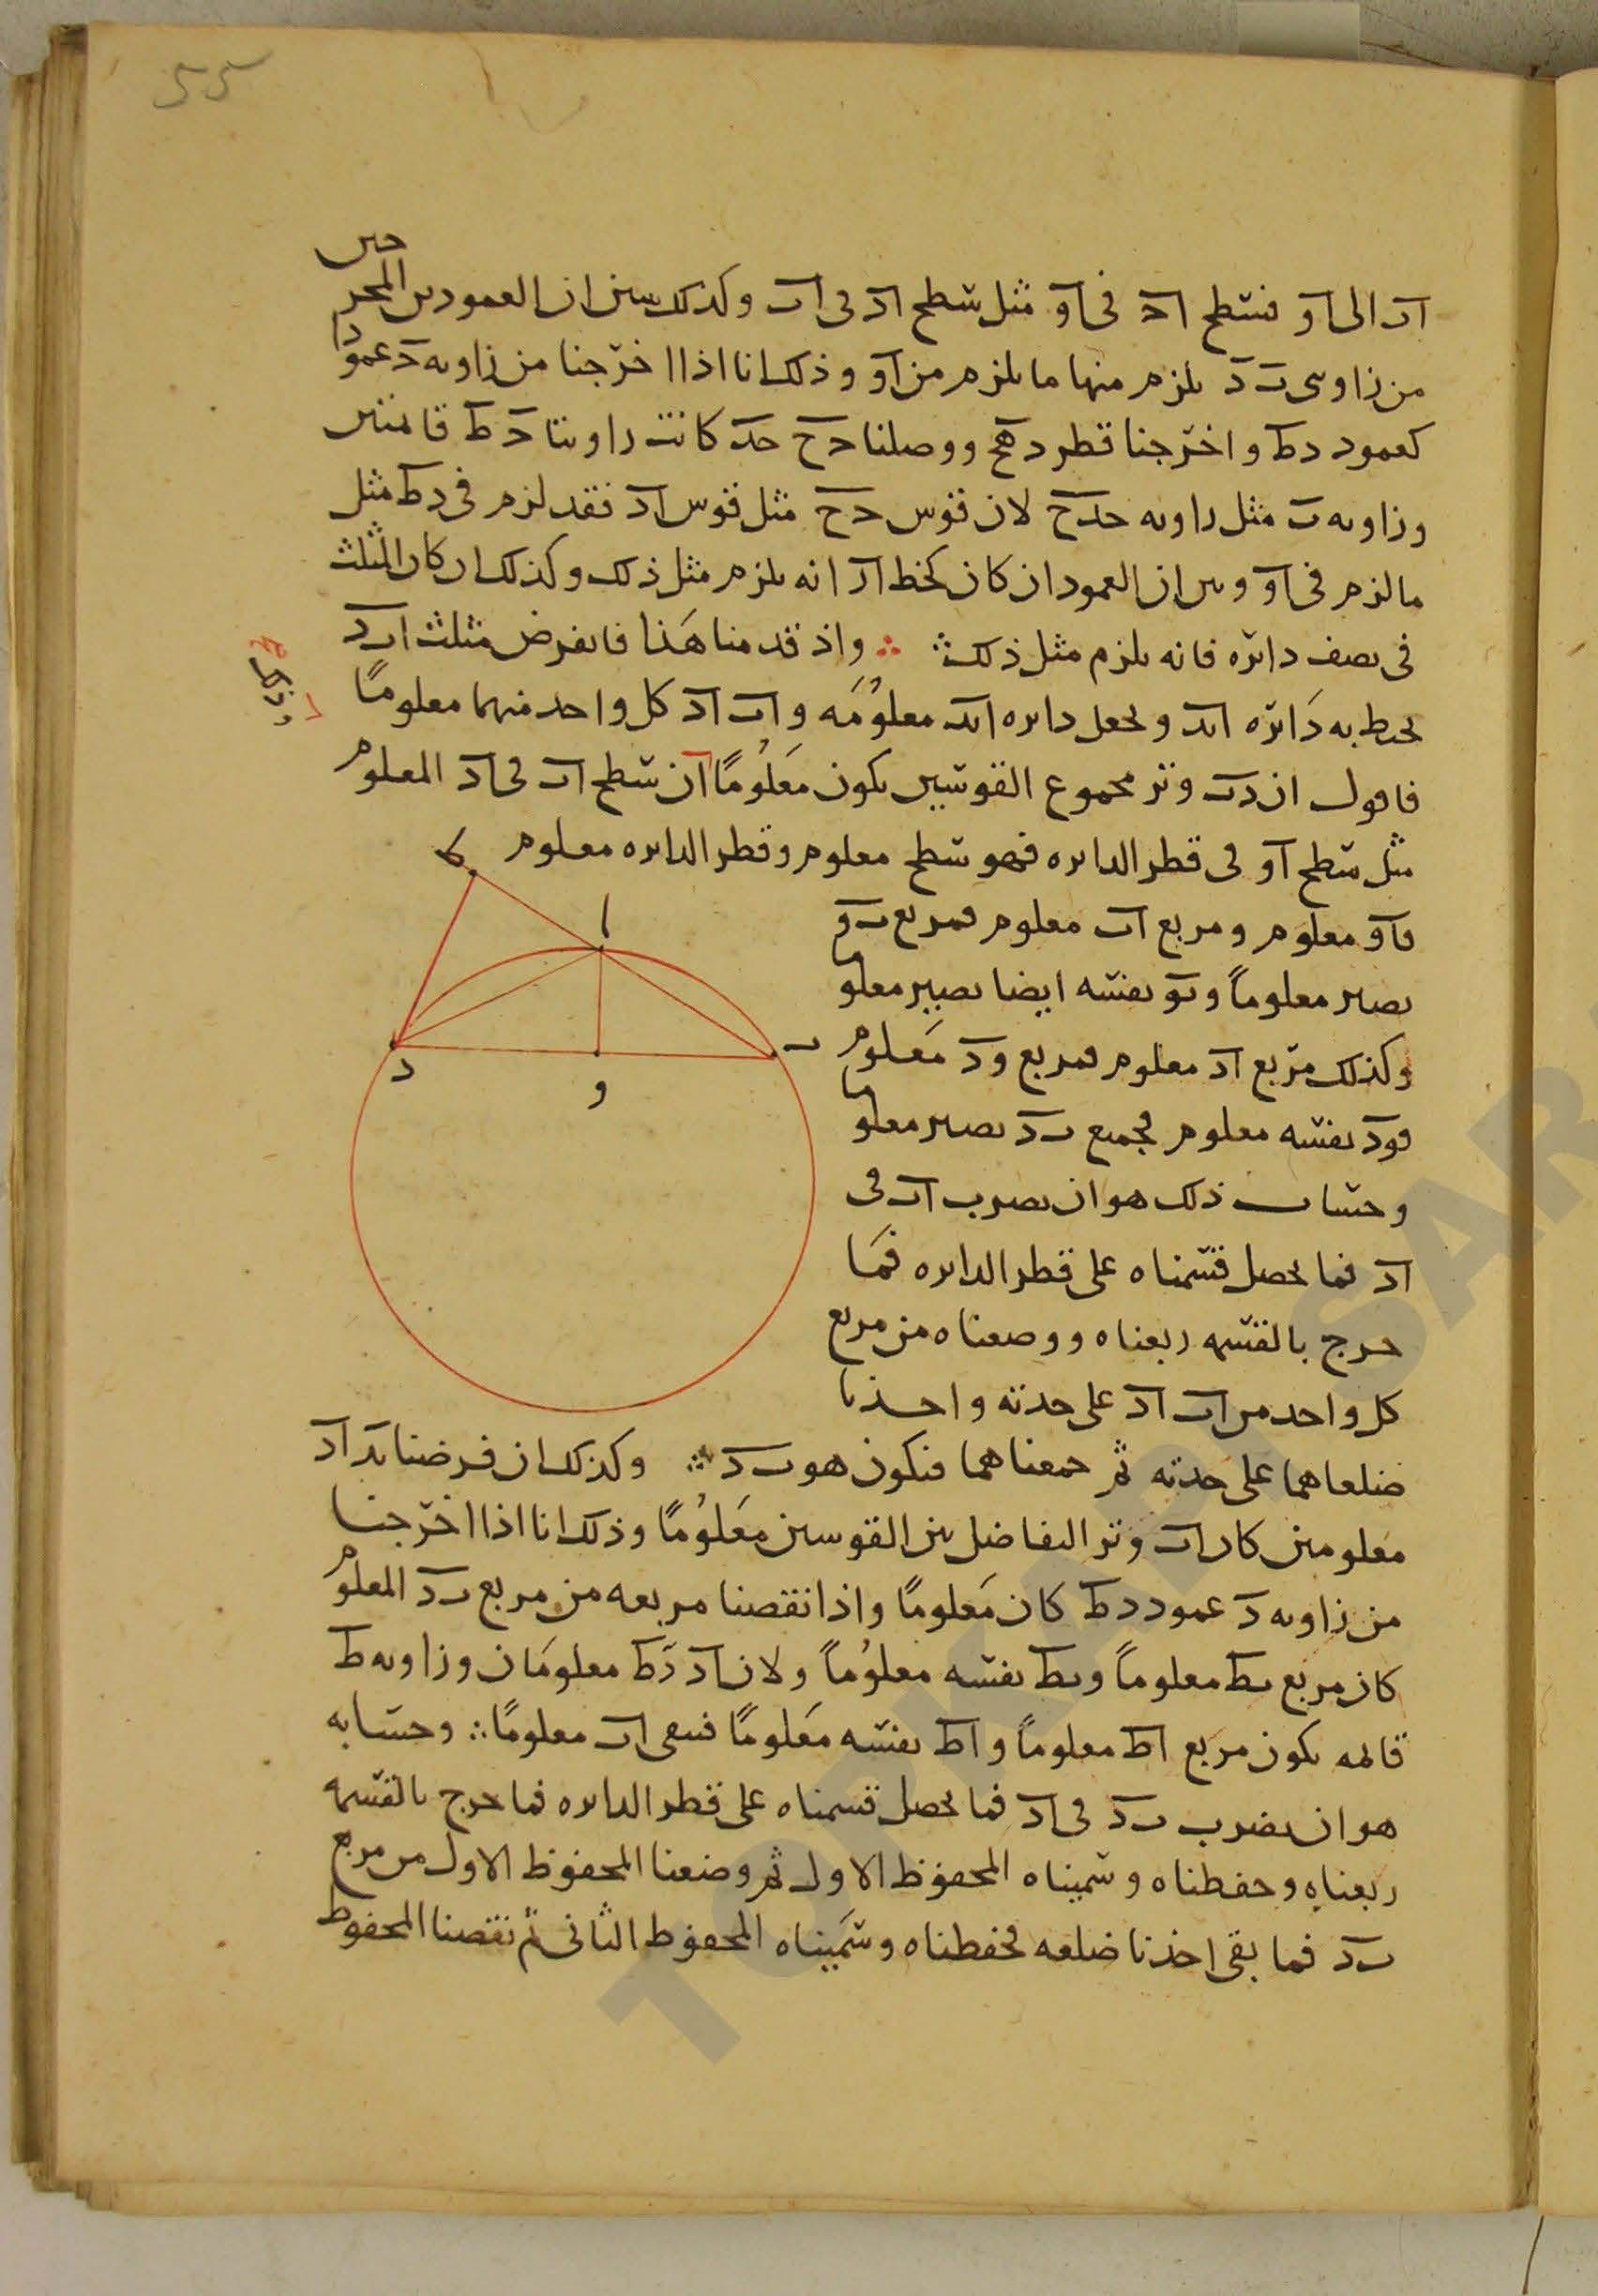 55
اب الى او فسطح اد فى او مثل سطح اد فى اب وكذلك نبين ان العمودين المخرجين
من زاويتى ب د يلزم منها ما يلزم من او وذلك انا اذا اخرجنا من زاوية د عمودا
كعمود دط واخرجنا قطر دهح ووصلنا دح حب كانت زاويتا د ط قائمتين
وزاويه ب مثل زاويه حدح لان قوس دح مثل قوس اد فقد لزم فى دط مثل
ما لزم فى او وبين ان العمود ان كان كخط اد انه يلزم مثل ذلك وكذلك ان كان المثلث
فى نصف دائرة فانه يلزم مثل ذلك ∴ واذ قد منا هذا فانفرض مثلث ابد
يحيط به دائرة ابد ونجعل دائره ابد معلومه واب اد كل واحد منهما معلوما
فاقول ان دب وتر مجموع القوسين يكون معلوما لان سطح اب فى اد المعلوم
مثل سطح او فى قطر الدائره فهو سطح معلوم وقطر الدائره معلوم
فاو معلوم ومربع اب معلوم فمربع بو
يصير معلوماً وبو نفسه ايضا يصير معلوما
وكذلك مربع اد معلوم فمربع ود معلوم
فود نفسه معلوم فجميع بد يصير معلوما
وحساب ذلك هو ان نضرب اب فى
اد فما يحصل قسمناه على قطر الدائره فما
خرج بالقسمه ربعناه ووضعناه من مربع
كل واحد من اب اد على حدته واخذنا
ضلعاهما على حدته ثم جمعناهما فيكون هو بد ∴ وكذلك ان فرضنا بد اد
معلومين كان اب وتر التفاضل بين القوسين معلوما وذلك انا اذا اخرجنا
من زاويه د عمود دط كان معلوما واذا نقصنا مربعه من مربع بد المعلوم
كان مربع بط معلوماً وبط نفسه معلوماً ولان اد دط معلومان وزاويه ط
قائمه يكون مربع اط معلوماً واط نفسه معلوما فيبقى اب معلوما ∴ وحسابه
هو ان نضرب بد فى اد فما يحصل قسمناه على قطر الدائره فما خرج بالقسمه
ربعناه وحفظناه وسميناه المحفوظ الاول ثم وضعنا المحفوظ الاول من مربع
بد فما بقى اخذنا ضلعه فحفظناه وسميناه المحفوظ الثانى ثم نقصنا المحفوظ
ط
ا
ب
د
و
TOPKAPI SAR